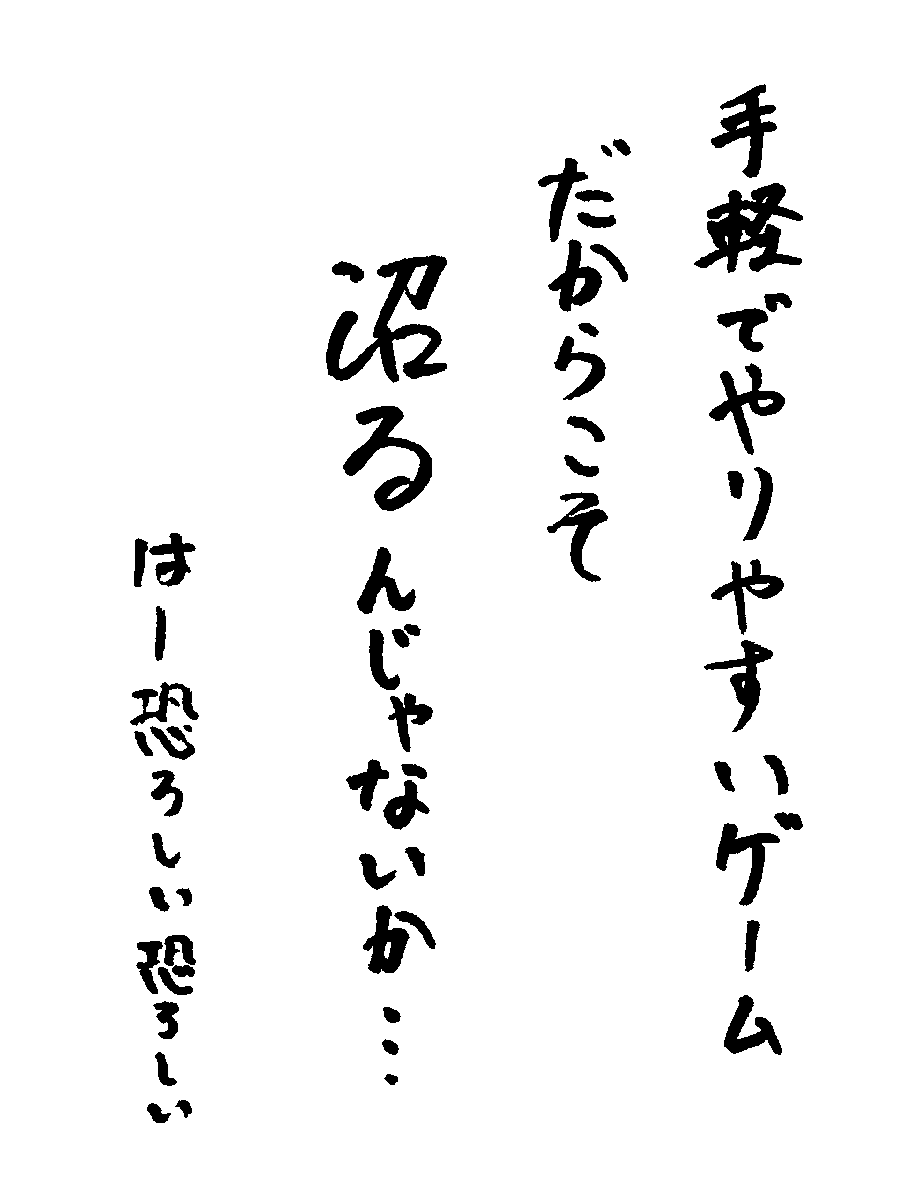 手軽でやりやすいゲーム
だからこそ
沼るんじゃないか…
はー恐ろしい恐ろしい